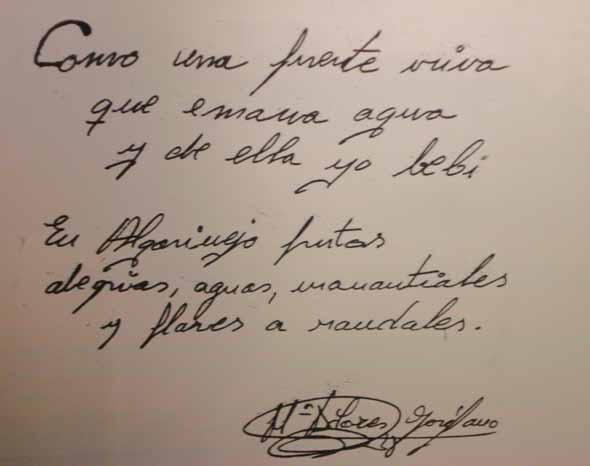 Como una fuente viva
que emana agua
y de ella yo bebí
En Algarinejo frutas
alegrías, aguas, manantiales
y flores a raudales.
Mª Dolores